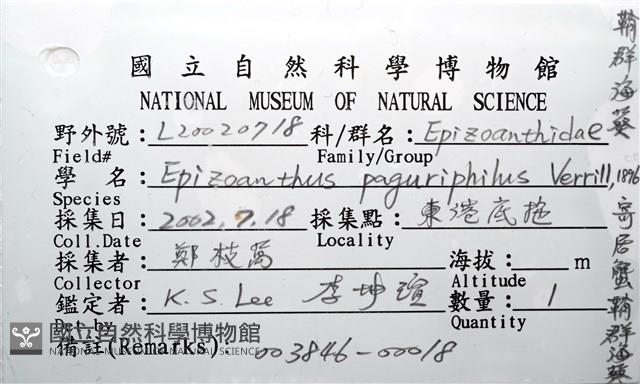 國立自然科學博物館
NATIONAL MUSEUM OF NATURAL SCIENCE
野外號：L20020718 科/群名：Epizoanthidae
Field# Family/Group
學 名：Epizoanthus paguriphilus Verrill, 1896
Species
採集日：2002.7.18 採集點：東港底拖
Coll.Date Locality
採集者：鄭枝萬 海拔： m
Collector Altitude
鑑定者：K.S. Lee 李坤瑄 數量：1
Det.by Quantity
備註(Remarks)： 003846-00018
國立自然科學博物館
NATIONAL MUSEUM OF NATURAL SCIENCE
鞘群海葵
寄居蟹鞘群海葵